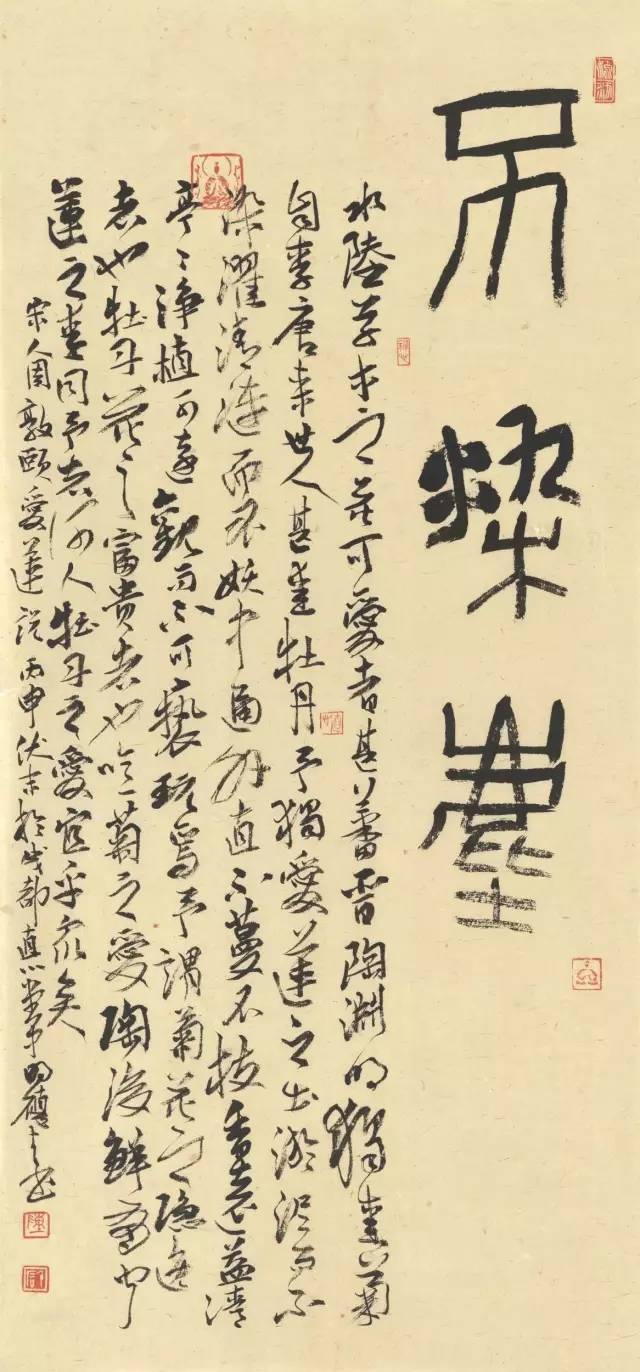 不染塵
水陸草木之花可愛者甚蕃晉陶淵明獨爱菊
自李唐来世人甚爱牡丹予獨愛蓮之出淤泥而不
染濯清漣而不妖中通外直不蔓不枝香遠益清
亭〻淨植可遠觀而不可褻玩焉予謂菊花之隐逸
者也牡丹花之富貴者也噫菊之愛陶後鮮有聞
蓮之爱同予者何人牡丹之愛宜乎衆矣
宋人周敦頤愛蓮說丙申伏末於成都直心堂